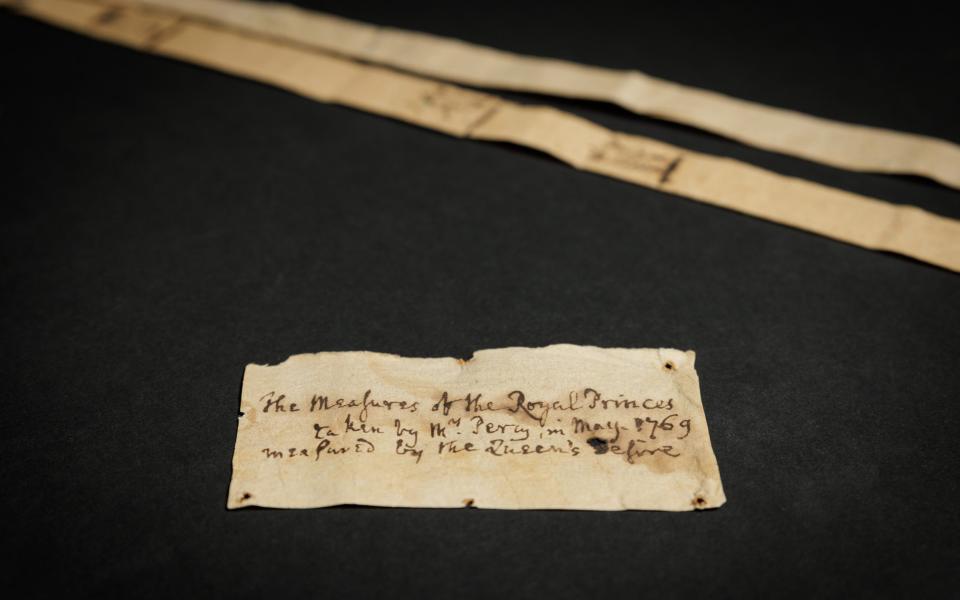 The Measures of the Royal Princes
taken by Mr. Percy, in May. 1769
measured by the Queen's Desire